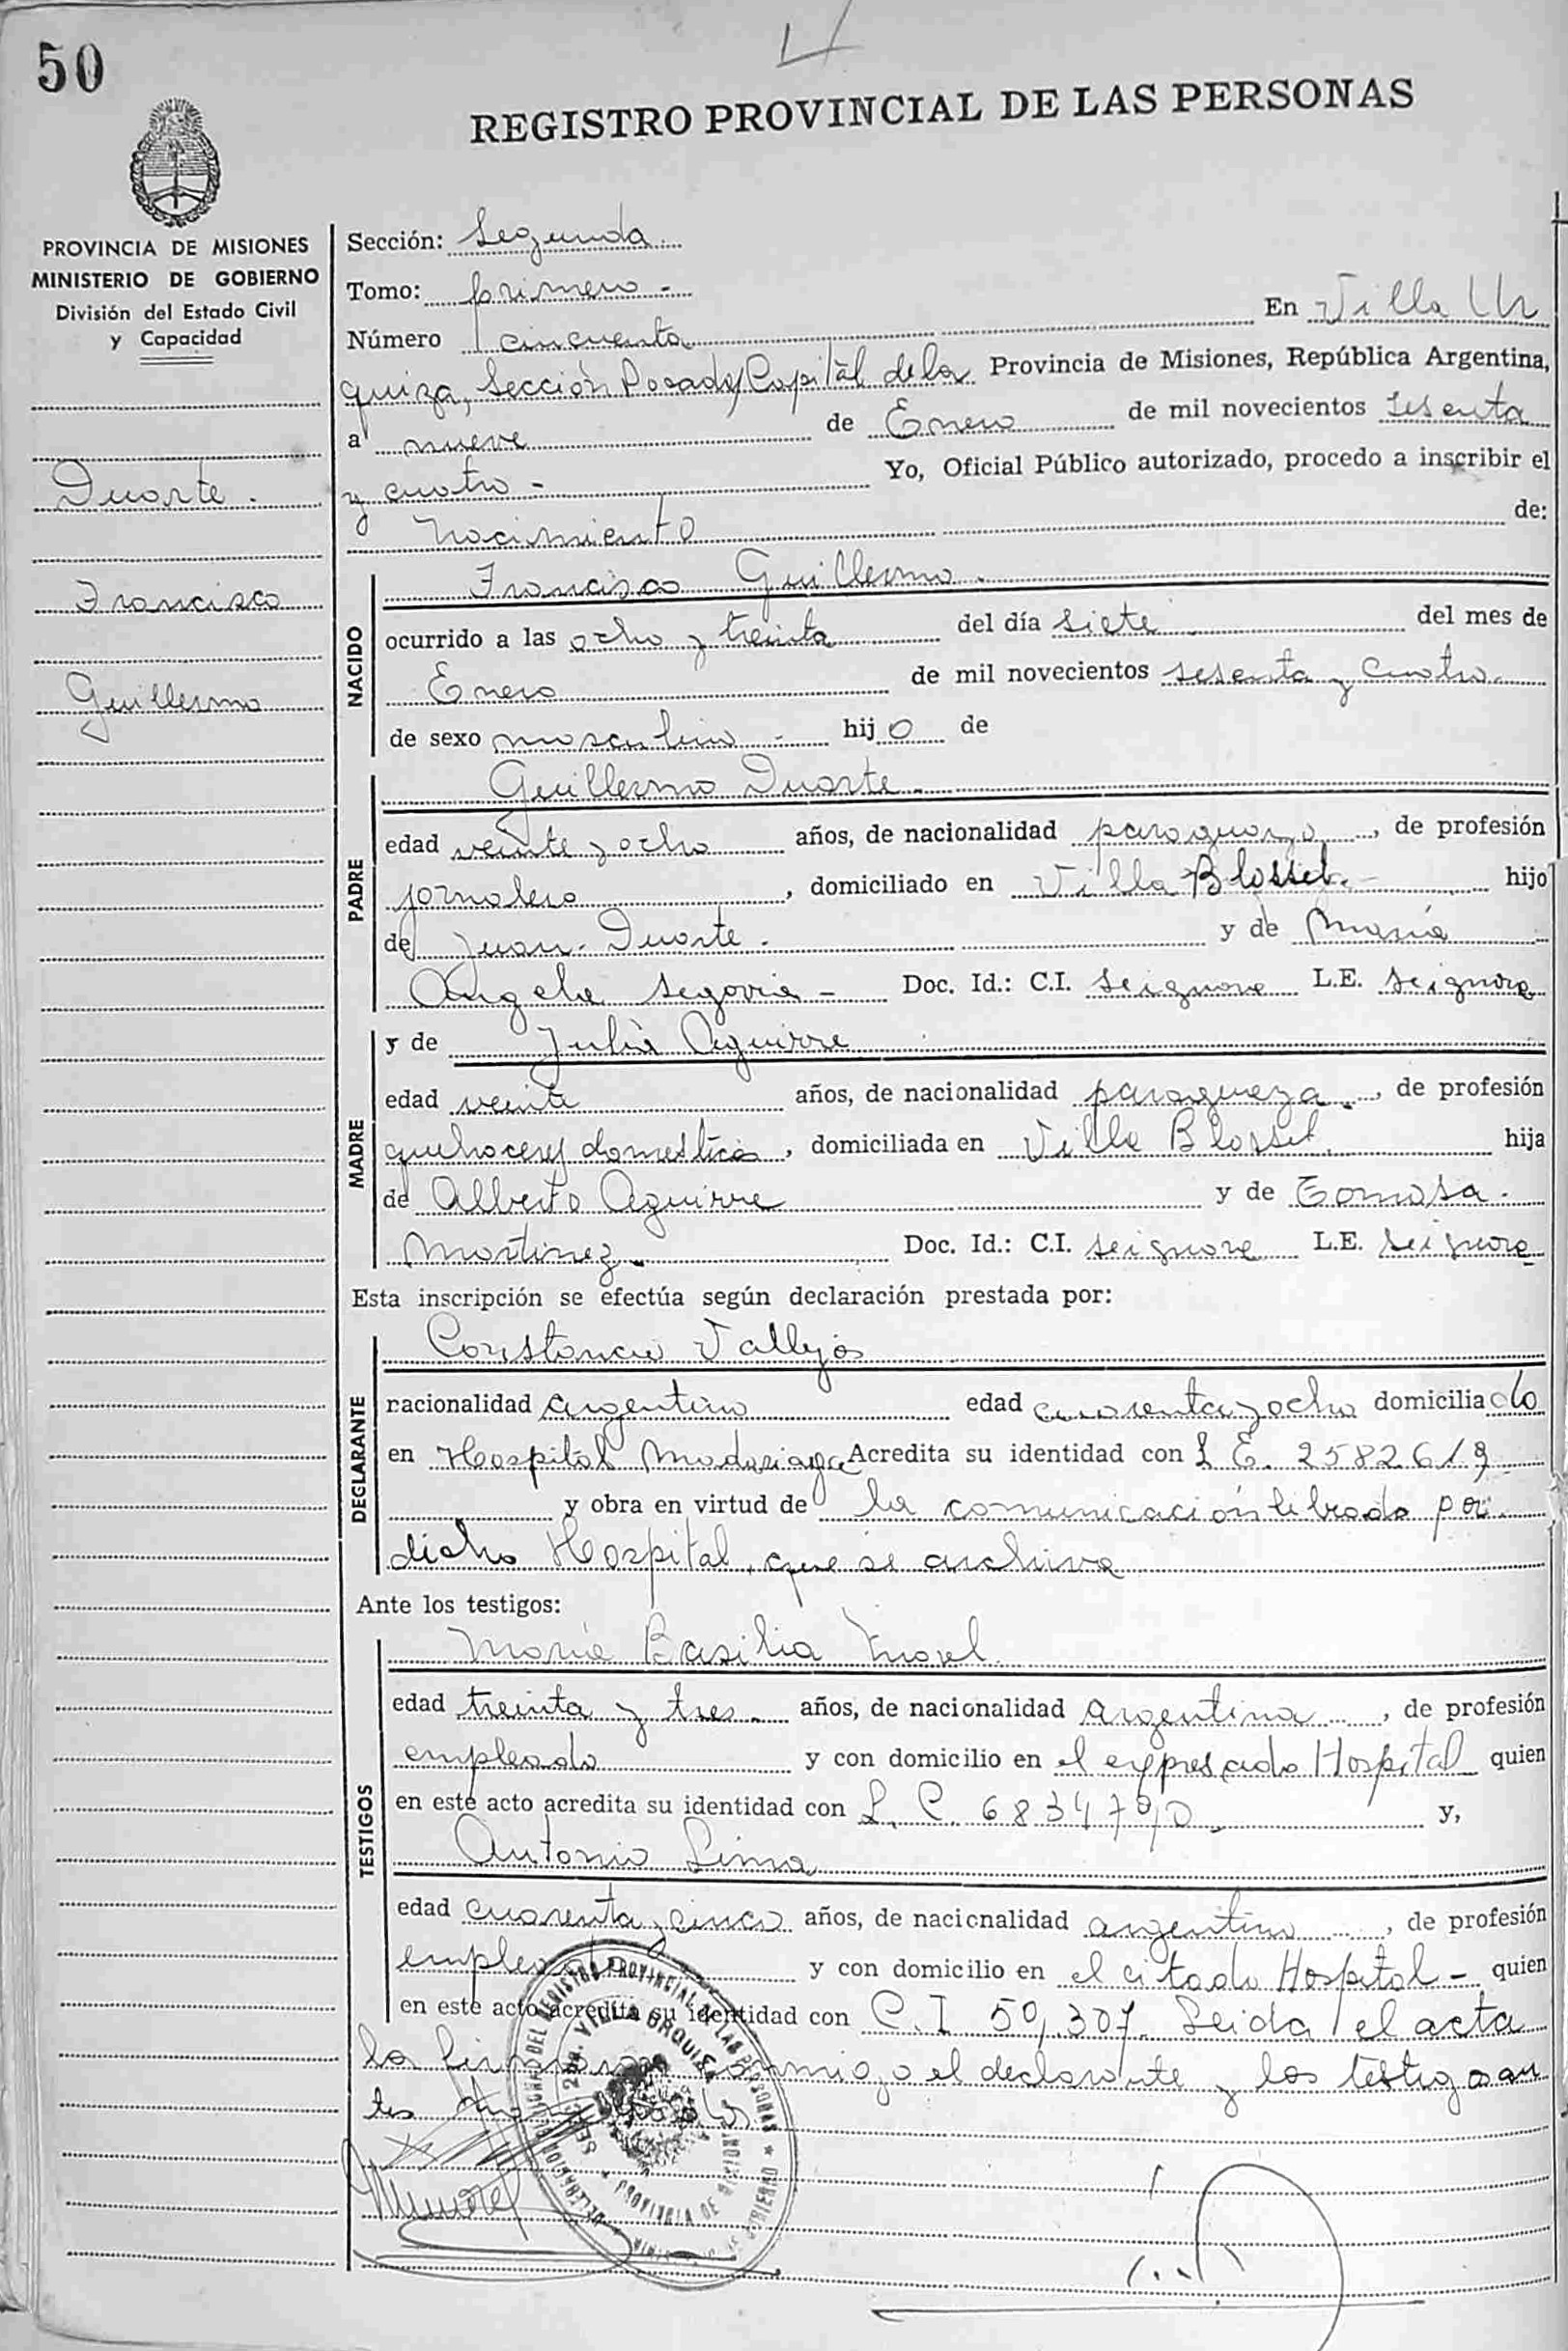 50
REGISTRO PROVINCIAL DE LAS PERSONAS
PROVINCIA DE MISIONES
MINISTERIO DE GOBIERNO
División del Estado Civil
y Capacidad
Duarte.
Francisco
Guillermo
Sección: Segunda
Tomo: primero -
Número cincuenta En Villa Ur
quiza, Sección Posadas Capital de la Provincia de Misiones, República Argentina,
a nueve de Enero de mil novecientos sesenta
y cuatro - Yo, Oficial Público autorizado, procedo a inscribir el
nacimiento de:
NACIDO
Francisco Guillermo.
ocurrido a las ocho y treinta del día siete del mes de
Enero de mil novecientos sesenta y cuatro.
de sexo masculino - hijo de
PADRE
Guillermo Duarte.
edad veinte y ocho años, de nacionalidad paraguayo, de profesión
jornalero, domiciliado en Villa Blosset.- hijo
de Juan Duarte. y de María
Angela Segovia - Doc. Id.: C.I. se ignora L.E. se ignora
MADRE
y de Julia Aguirre
edad veinte años, de nacionalidad paragueya, de profesión
quehaceres domesticos, domiciliada en Villa Blosset hija
de Alberto Aguirre y de Tomasa.
Martinez - Doc. Id.: C.I. se ignora L.E. se ignora
Esta inscripción se efectúa según declaración prestada por:
DECLARANTE
Constancio Vallejos
nacionalidad argentino edad cuarenta y ocho domiciliado
en Hospital Madariaga Acredita su identidad con L E. 2582619
y obra en virtud de la comunicación librada por
dicho Hospital, que se archiva
Ante los testigos:
TESTIGOS
María Basilia
edad treinta y tres - años, de nacionalidad argentina, de profesión
empleada y con domicilio en el expresado Hospital quien
en este acto acredita su identidad con L. C. y,
Antonio Lima
edad cuarenta y cinco años, de nacionalidad argentino, de profesión
empleado y con domicilio en el citado Hospital - quien
en este acto acredita su identidad con C. I Leida el acta
la firman conmigo el declarante y los testigos an
tes